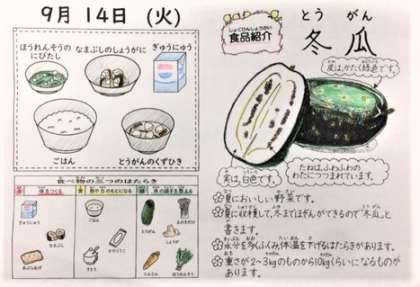 9月14日 (火)
ほうれんそうの
にびたし
なまぶしのしょうがに
ぎゅうにゅう
ごはん
とうがんのくずひき
食べ物の三つのはたらき
体をつくる
熱や力のもとになる
体の調子を整える
しょくひんしょうかい
食品紹介
とうがん
冬瓜
皮は、かたく緑色です。
たねは、ふわふわの
わたにつつまれています。
実は、白色です。
夏においしい野菜です。
夏に収穫して、冬までほぞんができるので「冬瓜」と
書きます。
水分を多くふくみ、体温を下げるはたらきがあります。
重さが2~3kgのものから10kgくらいになるものが
あります。